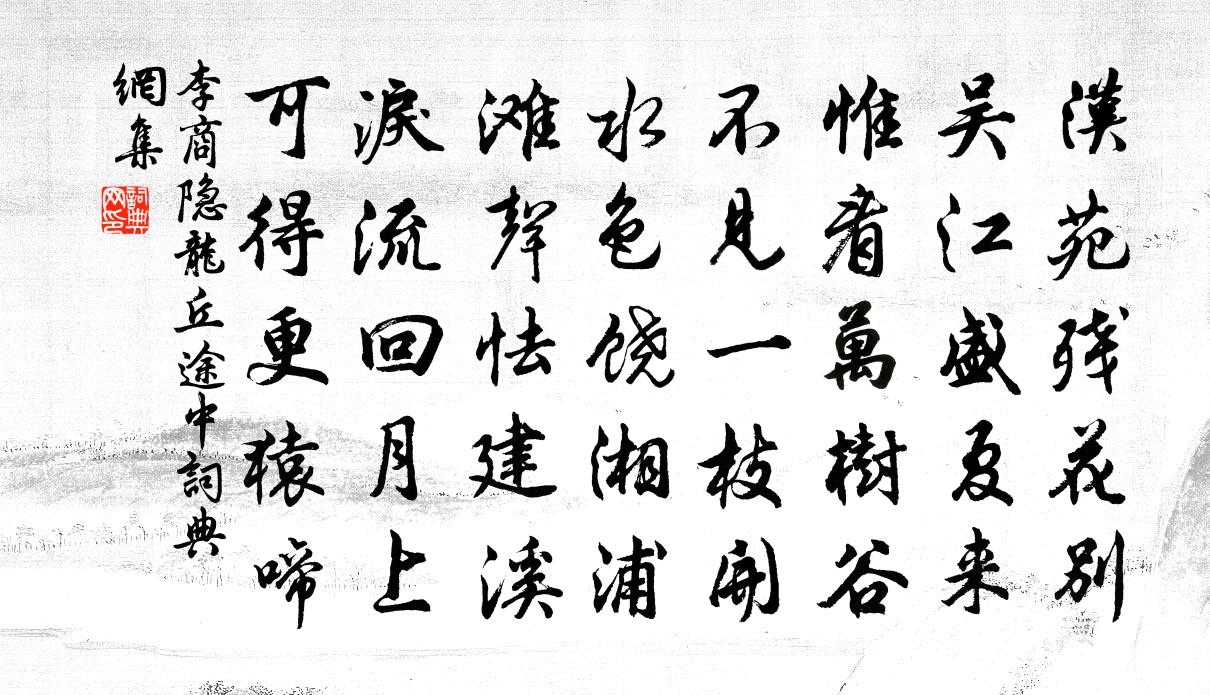 漢苑残花别
吴江盛夏来
惟看萬樹谷
不見一枝開
水色饶湘浦
滩聲怯建溪
淚流回月上
可得更猿啼
李商隐龍丘途中詞典
網集
詞典
网印